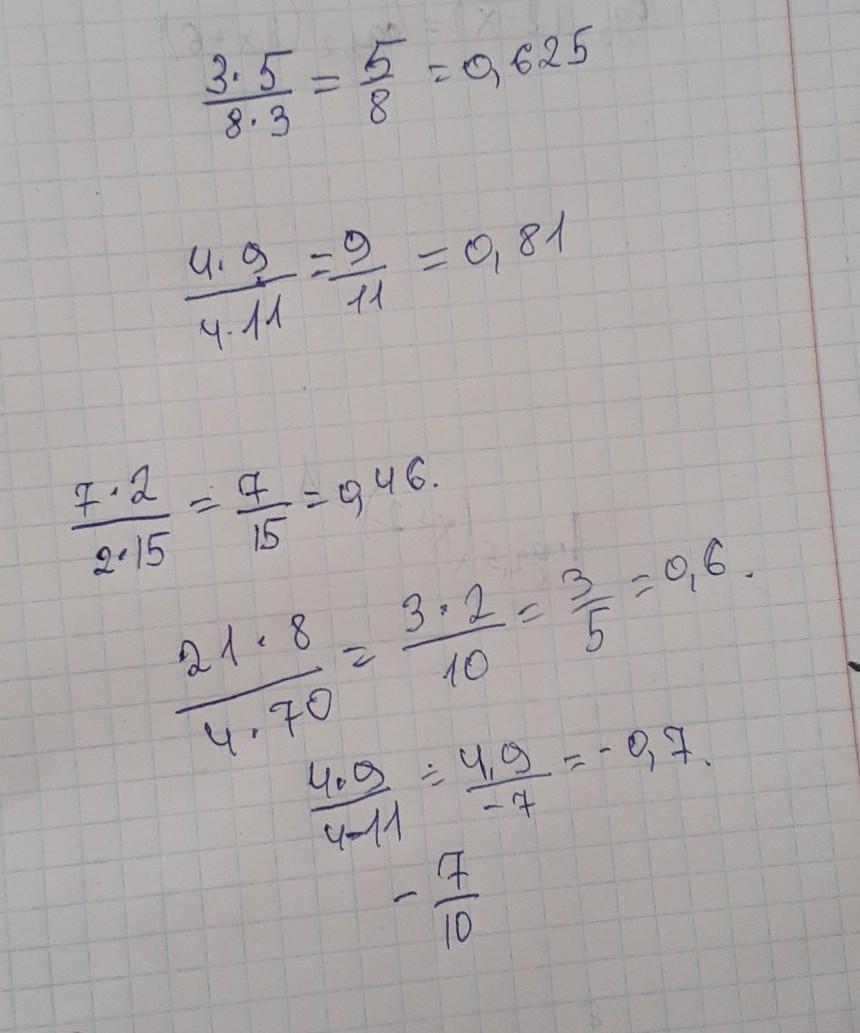 3·5/8·3 = 5/8 = 0,625
4·9/4·11 = 9/11 = 0,81
7·2/2·15 = 7/15 = 0,46.
21·8/4·70 = 3·2/10 = 3/5 = 0,6.
4.9/4-11 = 4,9/-7 = -0,7.
- 7/10